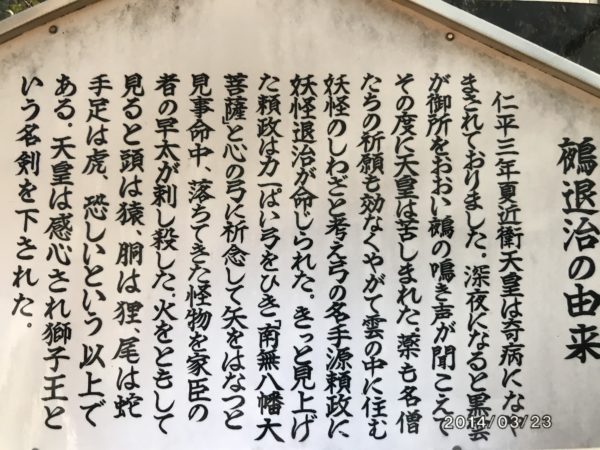 鵺退治の由来
仁平三年夏近衛天皇は奇病になや
まされておりました。深夜になると黒雲
が御所をおおい鵺の鳴き声が聞こえて
その度に天皇は苦しまれた、薬も名僧
たちの祈願も効なくやがて雲の中に住む
妖怪のしわざと考え弓の名手源頼政に
妖怪退治が命じられた。きっと見上げ
た頼政は力一ぱい弓をひき「南無八幡大
菩薩」と心の弓に祈念して矢をはなつと
見事命中、落ちてきた怪物を家臣の
者の早太が刺し殺した。火をともして
見ると頭は猿、胴は狸、尾は蛇
手足は虎、恐しいという以上で
ある。天皇は感心され獅子王と
いう名剣を下された。
2014/03/23